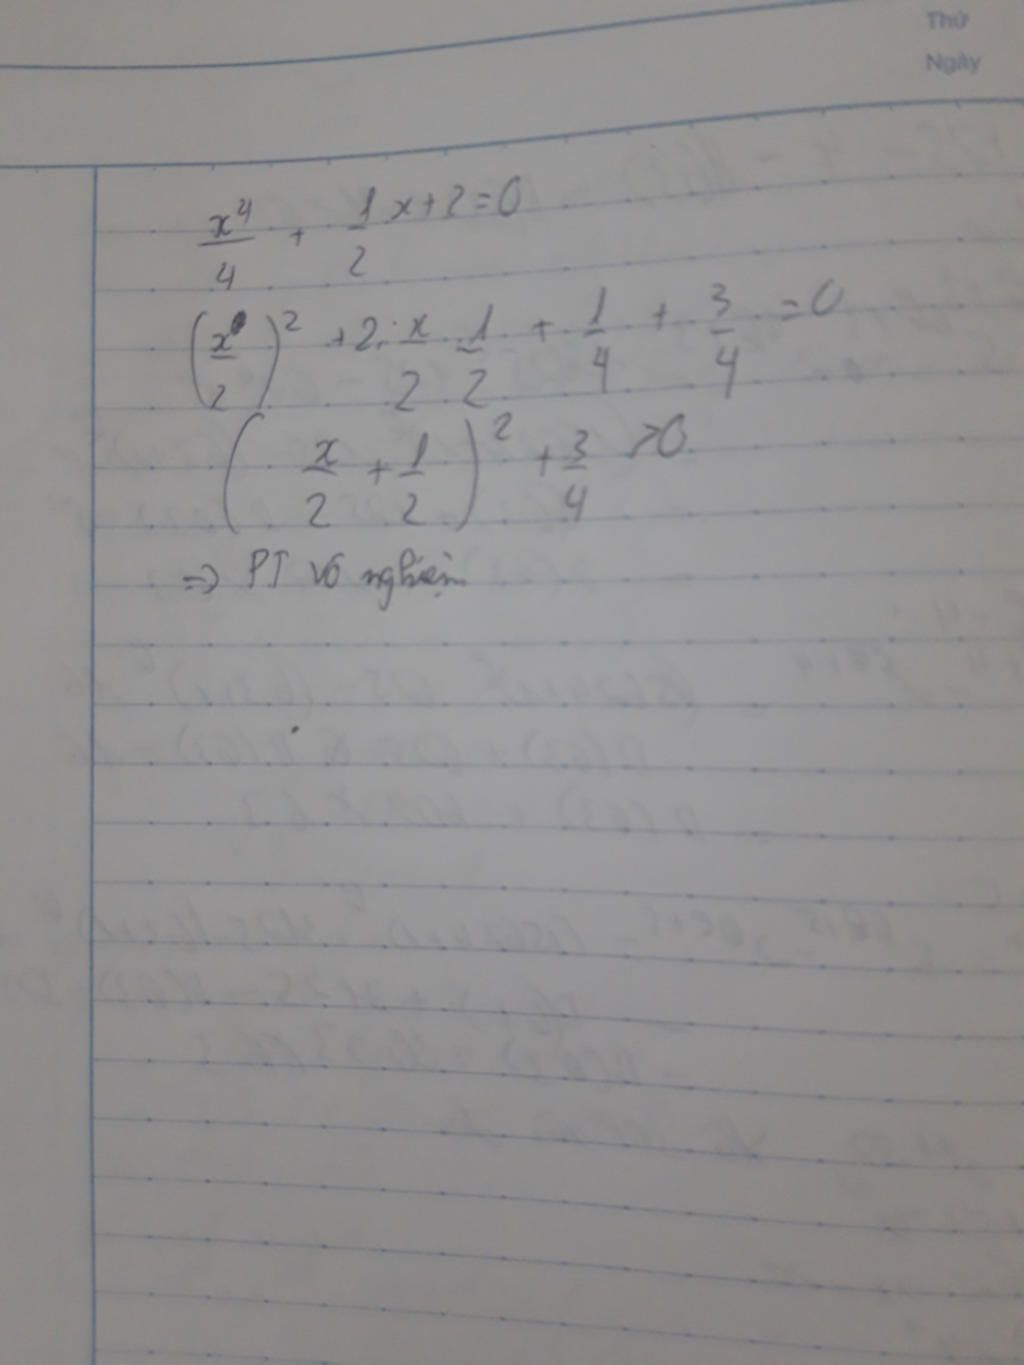 Thứ
Ngày
x⁴/4 + 1/2 x + 2 = 0
(x/2)² + 2. x/2 1/2 + 1/4 + 3/4 = 0
(x/2 + 1/2)² + 3/4 > 0
=> PT vô nghiệm